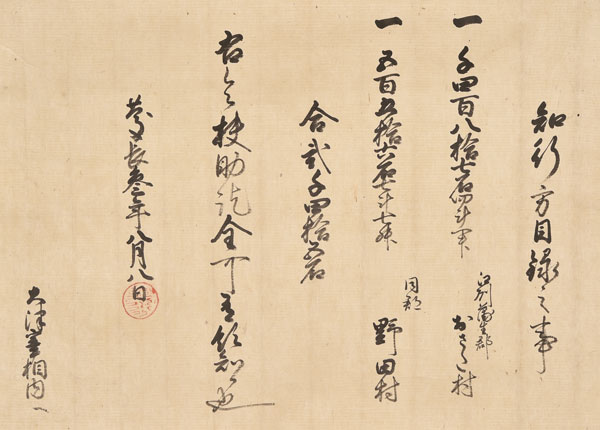 知行方目録之事
一 千四百八拾七石四斗
江州蒲生郡
おさた村
一 五百五拾
七升
同郡
野田村
合弐千四拾五石
右令扶助訖全可有領知候也
慶長参年八月八日
大津宰相内